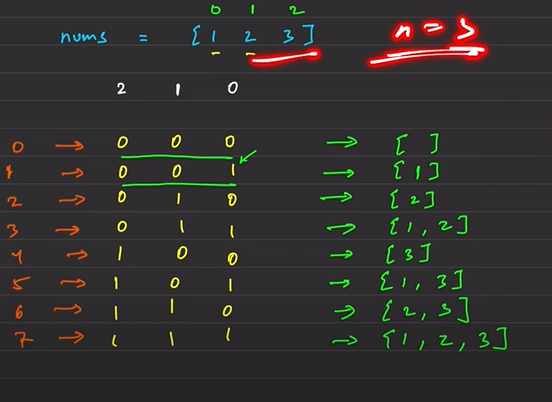 0 1 2
nums = [ 1 2 3 ] n = 3
2 1 0
0 → 0 0 0 → [ ]
1 → 0 0 1 → [ 1 ]
2 → 0 1 0 → [ 2 ]
3 → 0 1 1 → [ 1 , 2 ]
4 → 1 0 0 → [ 3 ]
5 → 1 0 1 → [ 1 , 3 ]
6 → 1 1 0 → [ 2 , 3 ]
7 → 1 1 1 → [ 1 , 2 , 3 ]